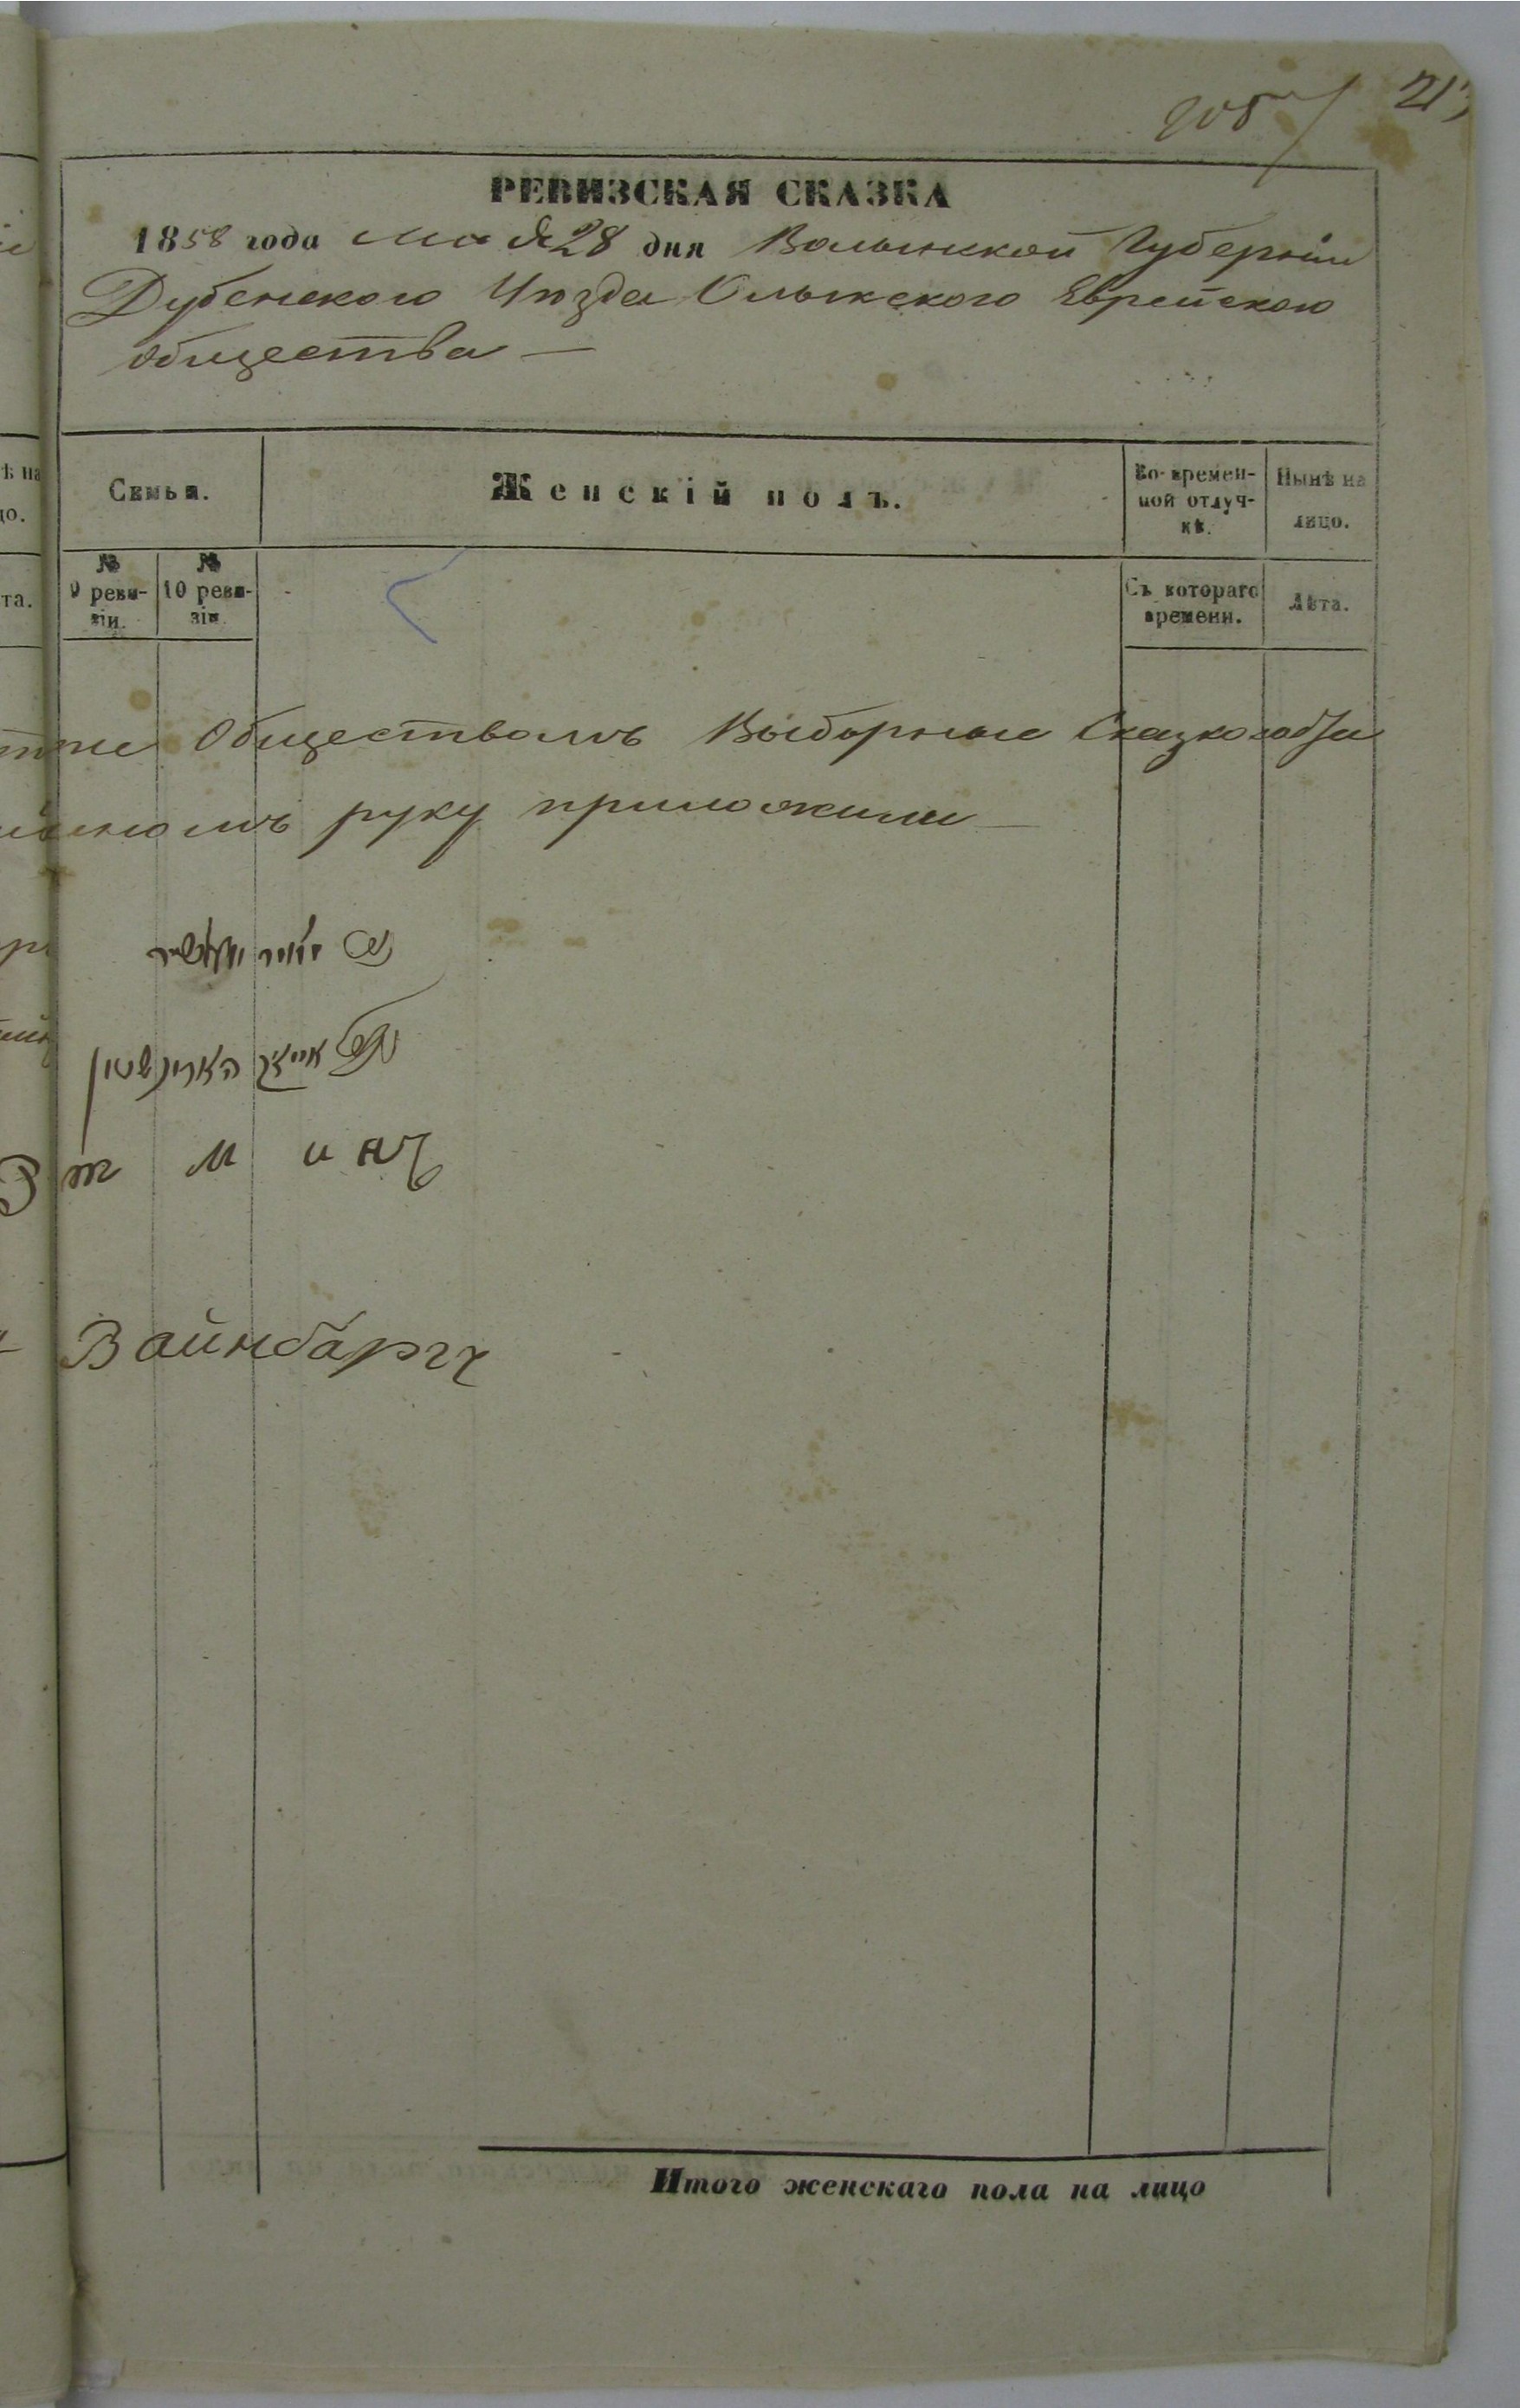 РЕВИЗСКАЯ СКАЗКА
1858 года мая 28 дня Волынской Губерніи
Дубенского Уѣзда Олыкского Еврейского
общества —
Семья.
Женскій полъ.
Во времен-
ной отлуч-
кѣ.
Нынѣ на
лицо.
№
9 реви-
зіи.
№
10 реви-
зіи.
Съ котораго
времени.
Лѣта.
Обществомъ Выборные
руку приложили —
אייזיק הארינשטיין
Вайнбаргъ
Итого женскаго пола на лицо